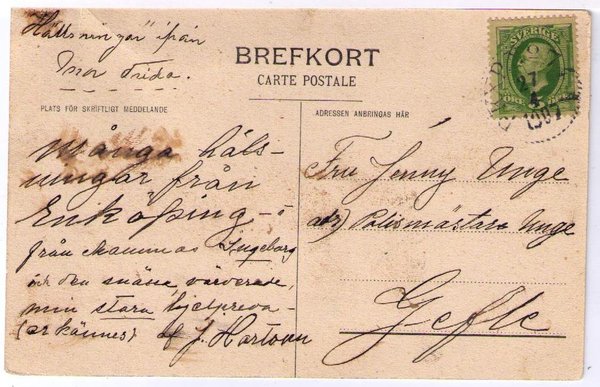 Hälsningar från
Frida.
BREFKORT
CARTE POSTALE
PLATS FÖR SKRIFTLIGT MEDDELANDE
ADRESSEN ANBRINGAS HÄR
SVERIGE
27
4
1907
Många häls-
ningar från
Enköping -
från mammas Ingeborg
och den snälla
min stora
af J.
Fru Jenny Unge
adr) Polismästare Unge
Gefle